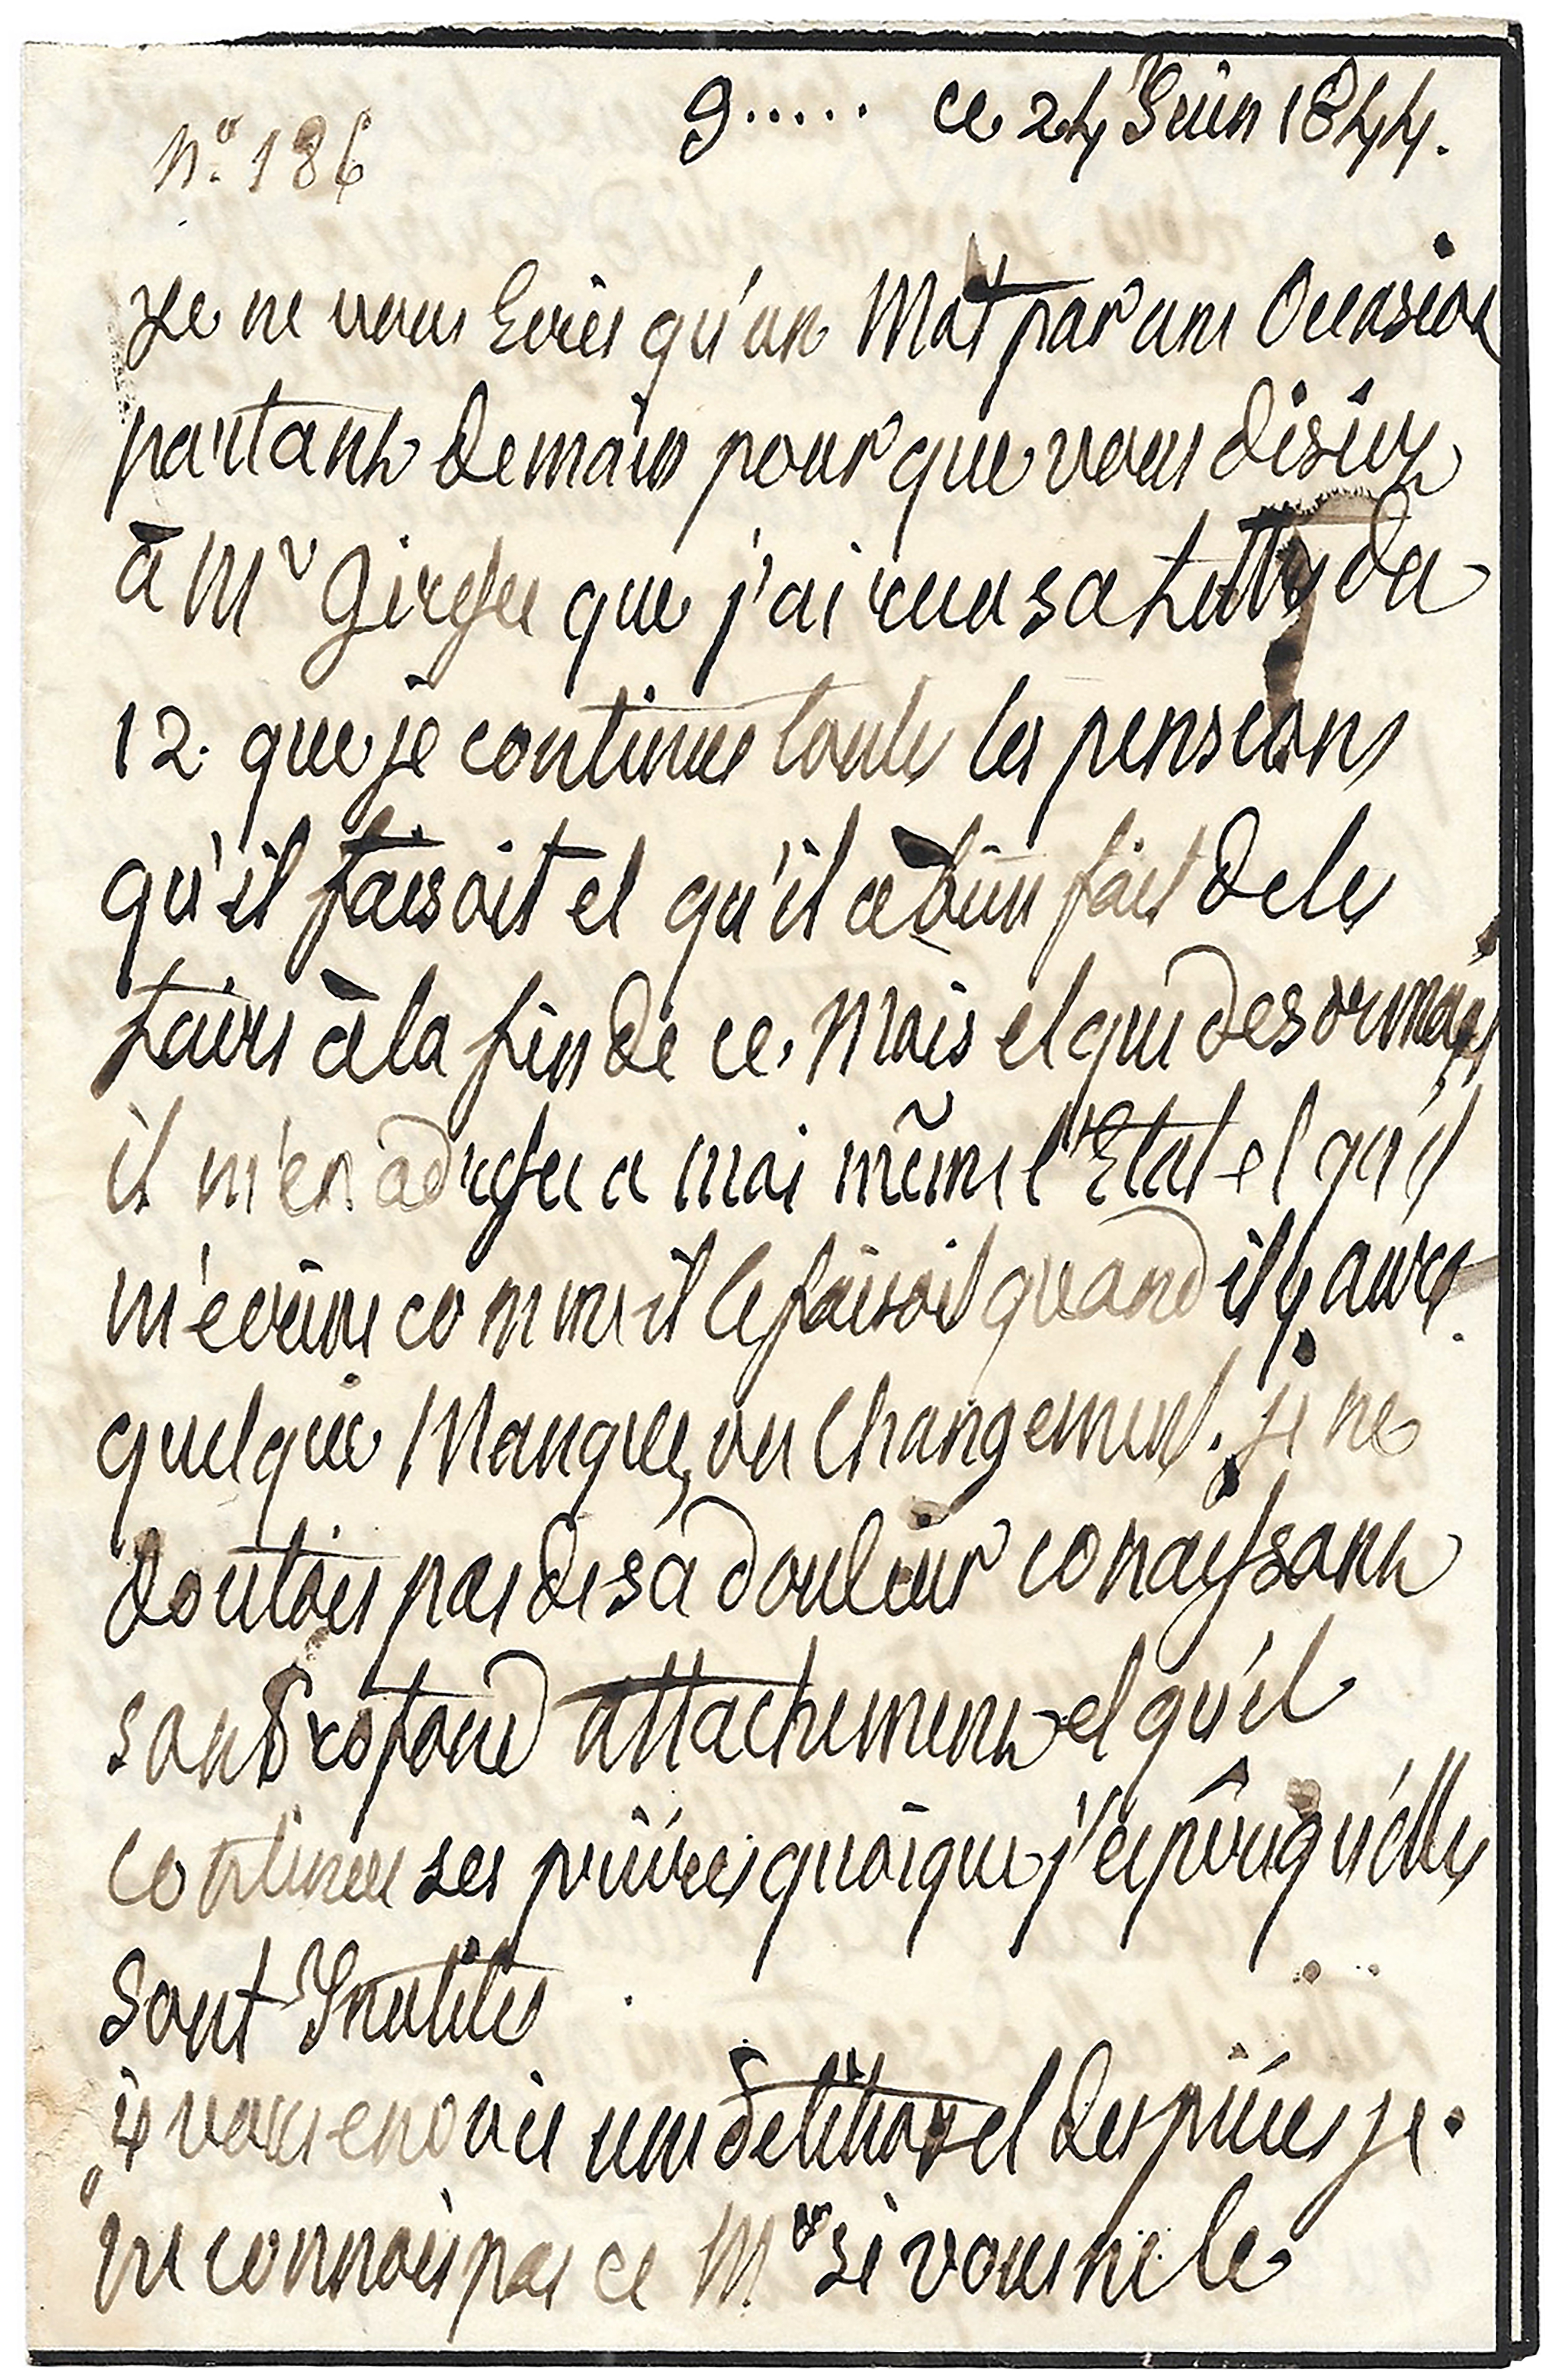 N° 186
g..... ce 24 Juin 1844.
Je ne vous Ecris qu'un Mot par une Occasion
partant demain pour que vous disiez
à Mr que j'ai reçu sa Lettre du
12. que je continue toute les pensions
qu'il faisoit et qu'il a bien fait de les
faire à la fin de ce. Mois et que desormais
il m'en adresse a moi même l'Etat et qu'il
m'ecrive comme il le faisoit quand il y aura.
quelque Manque, ou Changement. je ne
doutois pas de sa douleur conaissant
son Profond attachement et qu'il
continue ses prières quoique j'espère qu'elles
sont Inutiles
je vous envoie une de lettres et des pièces je.
ne connois pas ce Mr si vous ne le